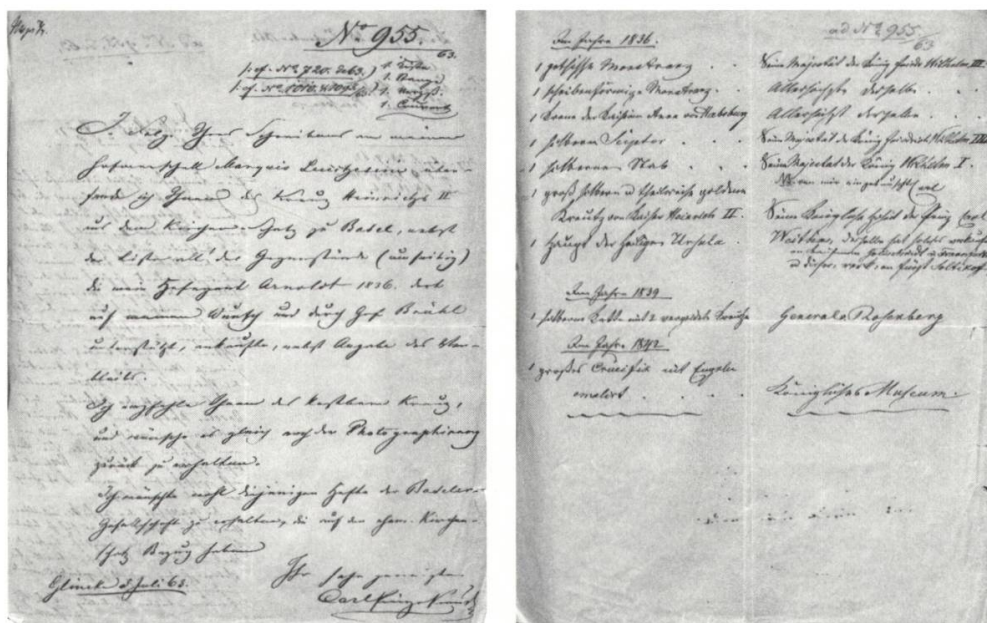 No 955.
63.
1. Liste
In Folge Ihres Schreibens an meinen
Hofmarschall Marquis Lucchesini über-
sende ich Ihnen das Kreuz Heinrichs II
aus dem Kirchen-Schatz zu Basel, nebst
der Liste all' der Gegenstände (umseitig)
die mein Hofagent Arnoldt 1836. dort
auf meinen Wunsch und durch Graf Brühl
unterstützt, ankaufte, nebst Angabe des Ver-
bleibs.
Ich empfehle Ihnen das kostbare Kreuz,
und wünsche es gleich nach der Photographirung
zurück zu erhalten.
Ich wünschte wohl diejenigen Hefte der Baseler-
Gesellschaft zu erhalten, die auf den ehem. Kirchen-
schatz Bezug haben
Ihr sehr geneigter
Glienicke Juli 63.
Carl Prinz v. Preußen
ad No 955.
63
Im Jahre 1836.
1 gothische Monstranz . Seine Majestät der König Friedr. Wilhelm III.
1 scheibenförmige Monstranz. Allerhöchst derselbe . .
1 Krone der Kaiserin Anna von Habsburg Allerhöchst derselbe . .
1 silbernes Scepter . . Seine Majestät der König Friedrich Wilhelm III
1 silberner Stab . . Seine Majestät der König Wilhelm I.
von mir eingetauscht Carl
1 groß silbern u theilweise goldenes
Kreutz von Kaiser Heinrich II. Seine Königliche Hoheit der Prinz Carl
1 Haupt der heiligen Ursula . derselbe hat solches verkauft
u dieser, an Fürst Soltikof.
Im Jahre 1839
1 silberne Kette mit 2 vergoldete Kreutze Generale Rosenberg
Im Jahre 1842
1 großes Crucifix mit Engeln
emalirt . . . . Königliches Museum.